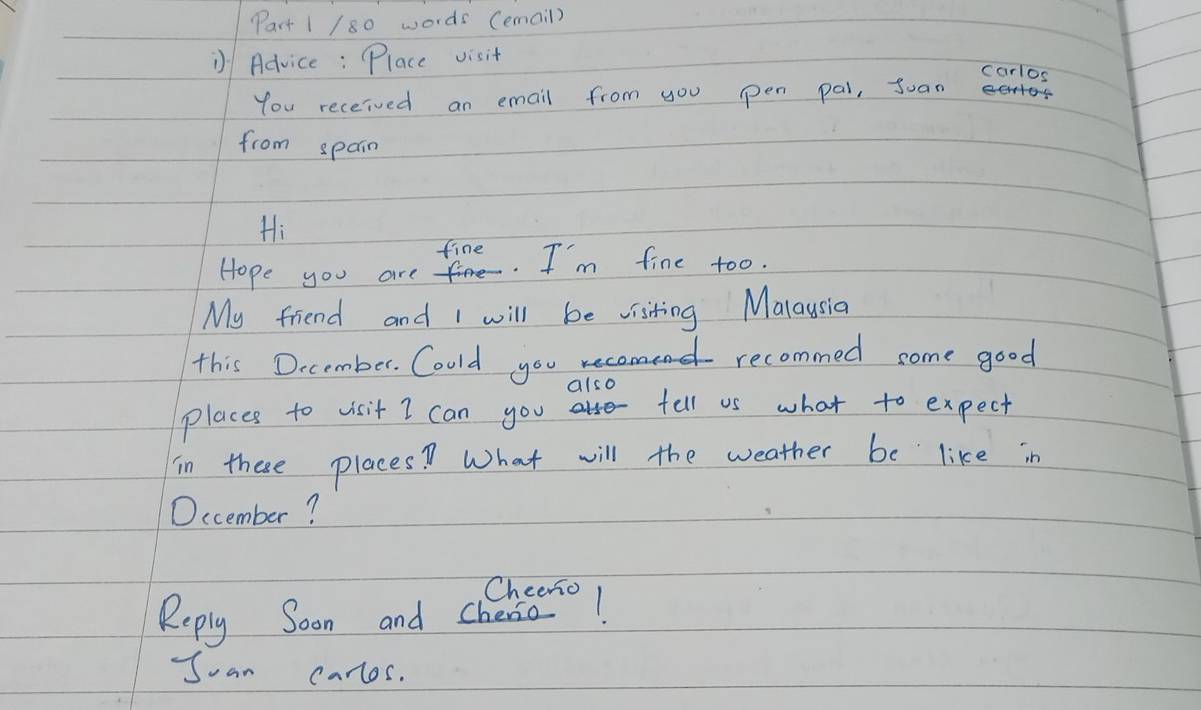 Part 1 / 80 words (email)
i) Advice : Place visit
You received an email from you pen pal, Juan carlos
from spain
Hi
Hope you are fine. I'm fine too.
My friend and I will be visiting Malaysia
this December. Could you recomend recommed some good
places to visit? can you also tell us what to expect
in these places? What will the weather be like in
December?
Reply Soon and Cheerio!
Juan carlos.